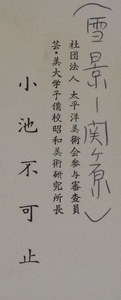 (雪景ー関ヶ原)
社団法人 太平洋美術会参与審査員
芸・美大学予備校昭和美術研究所長
小池不可止